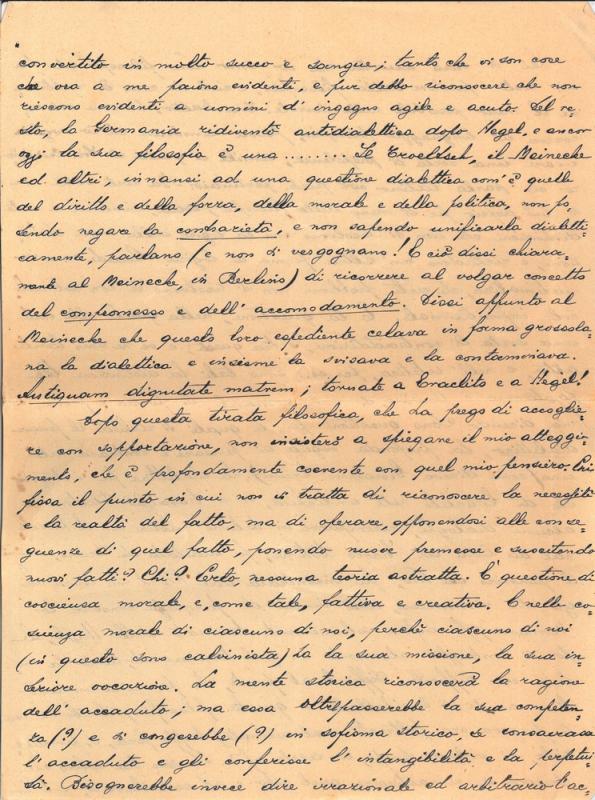 convertito in molto succo e sangue; tanto che vi son cose
che ora a me paiono evidenti, e pur debbo riconoscere che non
riescono evidenti a uomini d'ingegno agile e acuto. Del re=
sto, la Germania ridiventò antidialettica dopo Hegel, e ancor
oggi la sua filosofia è una ........ Il Troeltsch, il Meinecke
ed altri, innanzi ad una questione dialettica com'è quella
del diritto e della forza, della morale e della politica, non po,
tendo negare la contrarietà, e non sapendo unificarla dialetti=
camente, parlano (e non si vergognano! E ciò dissi chiara=
mente al Meinecke, in Berlino) di ricorrere al volgar concetto
del compromesso e dell'accomodamento. Dissi appunto al
Meinecke che questo loro espediente celava in forma grossola=
na la dialettica e insieme la svisava e la contaminava.
Antiquam dignitate matrem; tornate a Eraclito e a Hegel!
Dopo questa tirata filosofica, che La prego di accoglie=
re con sopportazione, non insisterò a spiegare il mio atteggia=
mento, che è profondamente coerente con quel mio pensiero. Chi
fissa il punto in cui non si tratta di riconoscere la necessità
e la realtà del fatto, ma di operare, opponendosi alle conse=
guenze di quel fatto, ponendo nuove premesse e suscitando
nuovi fatti? Chi? Certo, nessuna teoria astratta. È questione di
coscienza morale, e, come tale, fattiva e creativa. E nelle co=
scienza morale di ciascuno di noi, perchè ciascuno di noi
(in questo sono calvinista) ha la sua missione, la sua in=
teriore vocazione. La mente storica riconoscerà la ragione
dell'accaduto; ma essa oltrepasserebbe la sua competen=
za (?) e si congerebbe (?) in sofisma storico, se consacrasse
l'accaduto e gli conferisse l'intangibilità e la perpetui=
tà. Bisognerebbe invece dire irrazionale ed arbitrario l'ac=